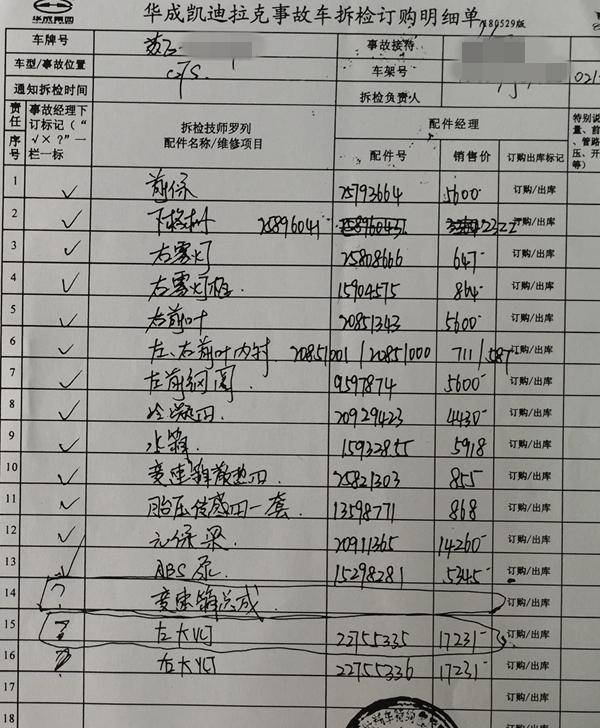 华成凯迪拉克事故车拆检订购明细单 180529版
车牌号 苏 事故接待
车型/事故位置 CTS. 车架号 021-
通知拆检时间 拆检负责人
责任 事故经理下订标记(“√×?”一栏一标 拆检技师罗列配件名称/维修项目 配件经理 特别说
序号 配件号 销售价 订购出库标记
1 ✓ 前保 25793664 5600 订购/出库
2 ✓ 下格栅 25896041 2322 订购/出库
3 ✓ 右雾灯 25808666 647- 订购/出库
4 ✓ 右雾灯框. 15904575 864- 订购/出库
5 ✓ 右前叶 20851343 5600- 订购/出库
6 ✓ 左、右前叶内衬 20851001 / 20851000 711 / 587 订购/出库
7 ✓ 左前钢圈 9597874 5600- 订购/出库
8 ✓ 冷凝器 20929423 4430- 订购/出库
9 ✓ 水箱. 15932855 5918 订购/出库
10 ✓ 变速箱散热器 25821303 855 订购/出库
11 ✓ 胎压传感器一套 13598771 868 订购/出库
12 ✓ 元保梁 20911365 14260- 订购/出库
13 ABS泵. 15298281 5345- 订购/出库
14 ? 变速箱总成 订购/出库
15 ? 左大灯 22755335 17231- 订购/出库
16 ? 右大灯 22755336 17231- 订购/出库
17 订购/出库
18 订购/出库